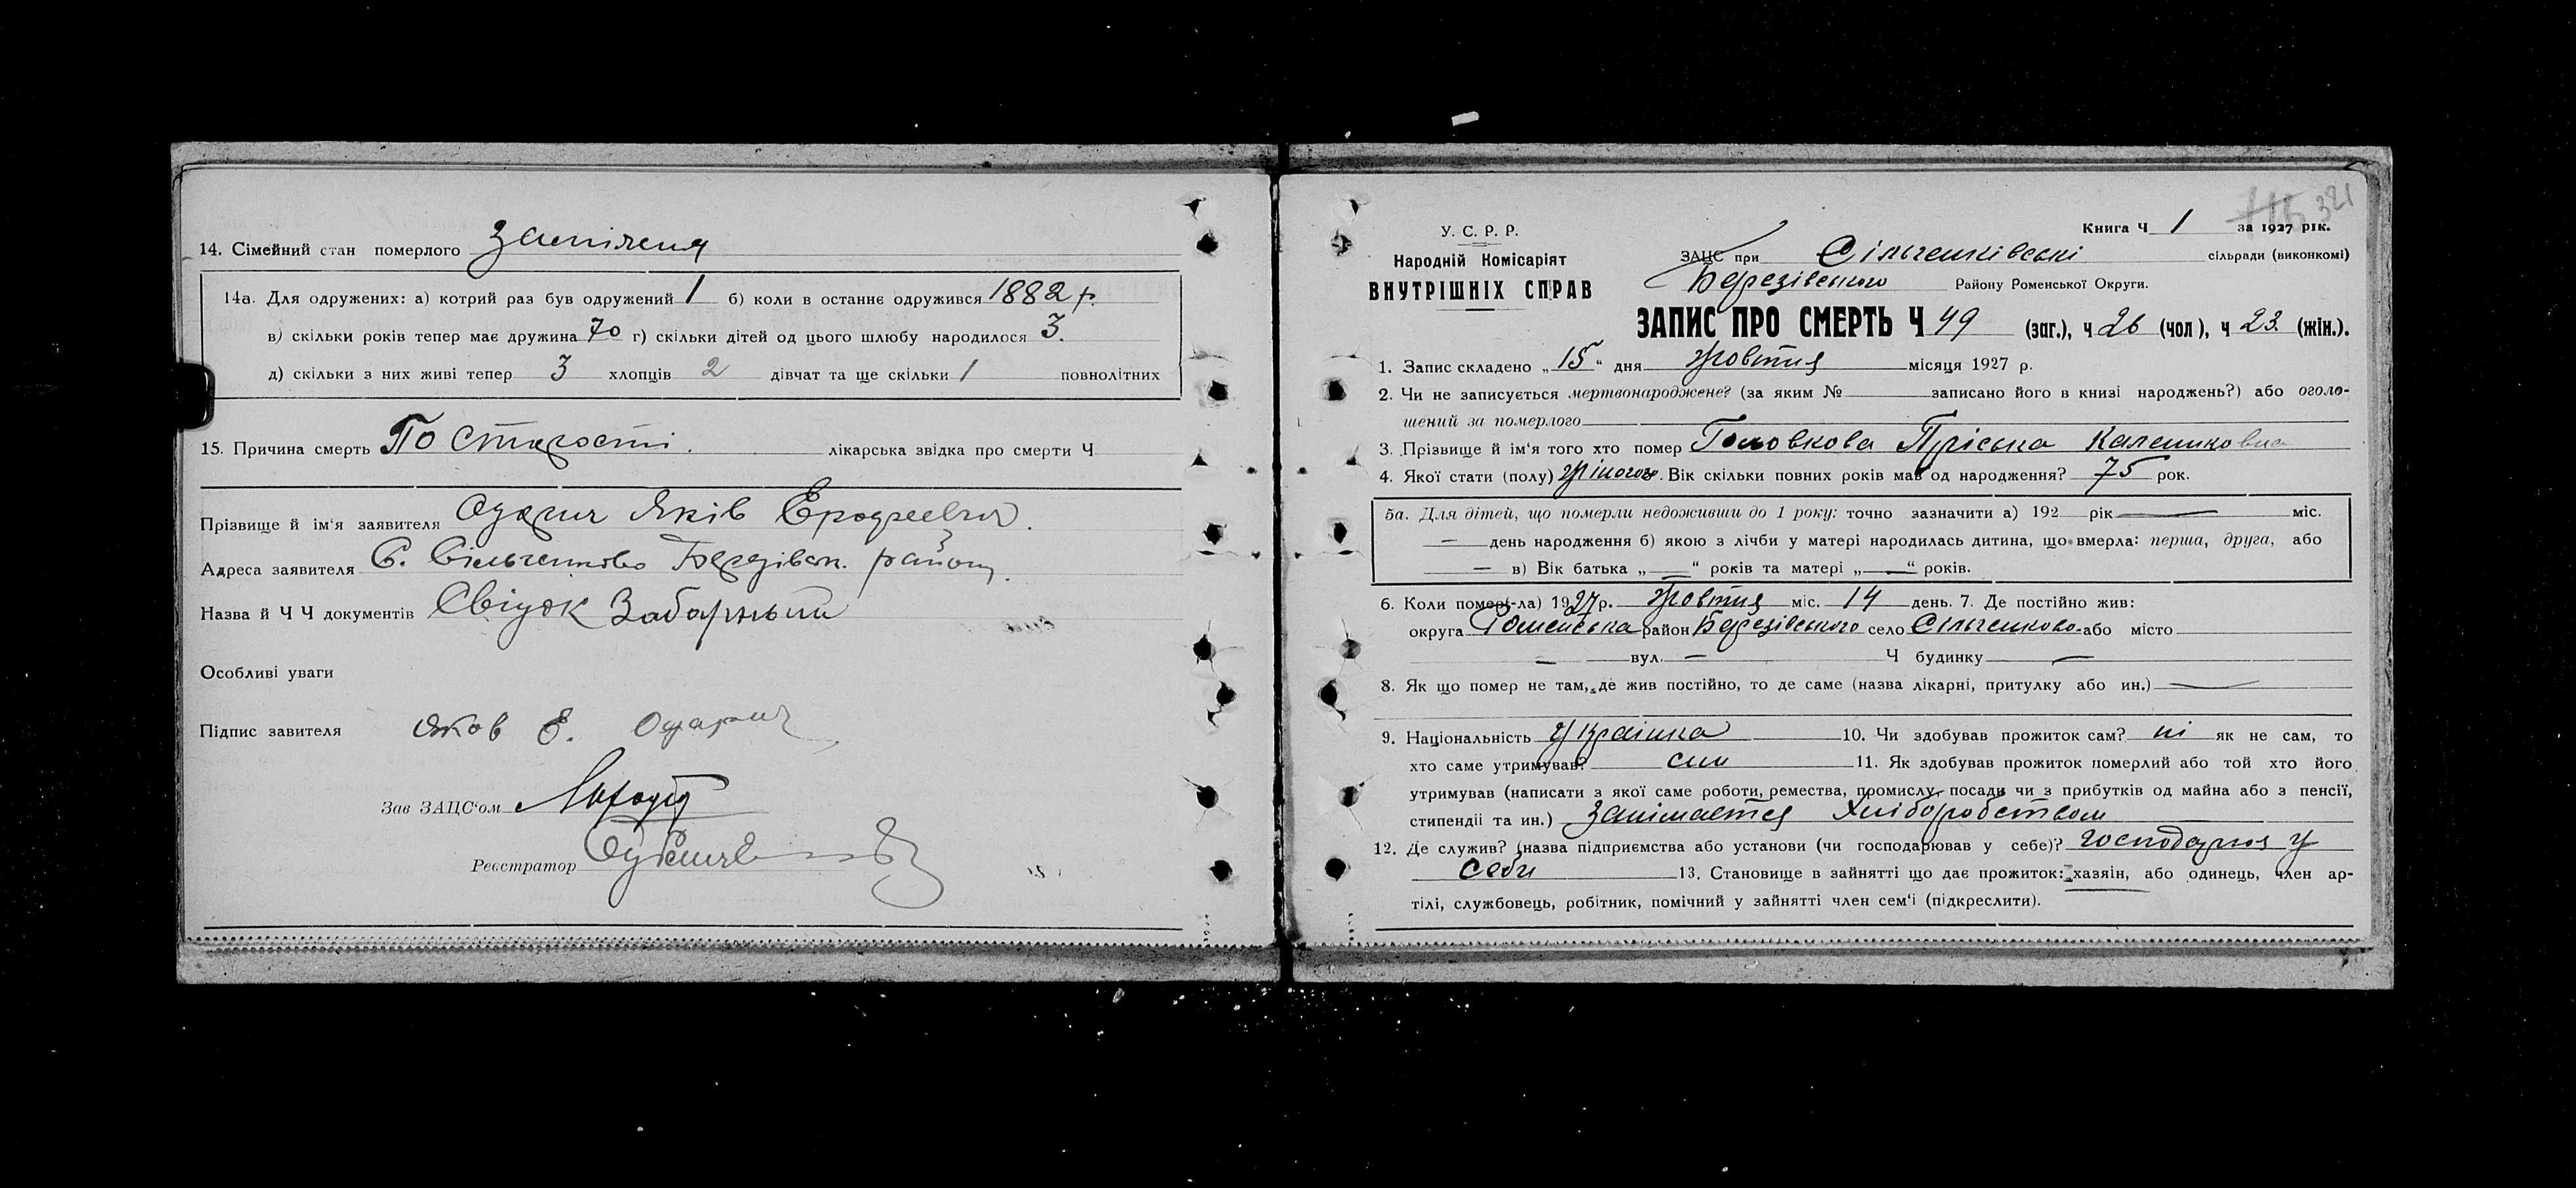 14. Сімейний стан померлого заміжня
14а. Для одружених: а) котрий раз був одружений 1 б) коли в останнє одружився 1882 р.
в) скільки років тепер має дружина 70 г) скільки дітей од цього шлюбу народилося 3.
д) скільки з них живі тепер 3 хлопців 2 дівчат та ще скільки 1 повнолітних
15. Причина смерть По старості. лікарська звідка про смерти Ч
Прізвище й ім'я заявителя Яків
Адреса заявителя С. Сільченково Березівск. району.
Назва й Ч Ч документів Свідок
Особливі уваги
Підпис завителя Яков Е.
Зав ЗАЦС'ом
Реєстратор
321
У. С. Р. Р.
Народній Комісаріят
ВНУТРІШНІХ СПРАВ
Книга Ч 1 за 1927 рік.
ЗАЦС при Сільченківські сільради (виконкомі)
Березівського Району Роменської Округи.
ЗАПИС ПРО СМЕРТЬ Ч 49 (заг.), ч 26 (чол), ч 23. (жін.).
1. Запис складено „15“ дня жовтня місяця 1927 р.
2. Чи не записується мертвонароджене? (за яким № записано його в книзі народжень?) або оголо-
шений за померлого
3. Прізвище й ім'я того хто помер Головкова Пріська Калениковна
4. Якої стати (полу) жіночого. Вік скільки повних років мав од народження? 75 рок.
5а. Для дітей, що померли недоживши до 1 року: точно зазначити а) 192 рік — міс.
— день народження б) якою з лічби у матері народилась дитина, що вмерла: перша, друга, або
— в) Вік батька „—“ років та матері „—“ років.
6. Коли помер(-ла) 1927 р. жовтня міс. 14 день. 7. Де постійно жив:
округа Роменська район Березівського село Сільченково або місто
— вул. — Ч будинку —
8. Як що помер не там, де жив постійно, то де саме (назва лікарні, притулку або ин.) —
9. Національність Українка 10. Чи здобував прожиток сам? ні як не сам, то
хто саме утримував? син 11. Як здобував прожиток померлий або той хто його
утримував (написати з якої саме роботи, ремества, промислу, посади чи з прибутків од майна або з пенсії,
стипендіі та ин.) Занімается хліборобством
12. Де служив? (назва підприємства або установи (чи господарював у себе)? господарює у
себи 13. Становище в зайнятті що дає прожиток: хазяін, або одинець, член ар-
тілі, службовець, робітник, помічний у зайнятті член сем'ї (підкреслити).